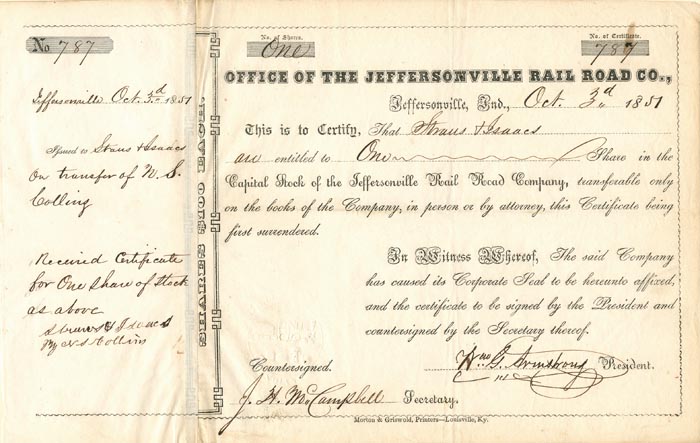 No 787
Jeffersonville Oct. 3d 1851
Issued to Straus & Isaacs
On transfer of N. S.
Collins
Received Certificate
for One Share of Stock
as above
Straus & Isaacs
By N S Collins
SHARES $100 EACH.
No. of Shares.
One
No. of Certificate.
787
OFFICE OF THE JEFFERSONVILLE RAIL ROAD CO.,
Jeffersonville, Ind., Oct. 3d 1851
This is to Certify, That Straus & Isaacs
are entitled to One Share in the
Capital Stock of the Jeffersonville Rail Road Company, transferable only
on the books of the Company, in person or by attorney, this Certificate being
first surrendered.
In Witness Whereof, The said Company
has caused its Corporate Seal to be hereunto affixed,
and the certificate to be signed by the President and
countersigned by the Secretary thereof.
Wm G. Armstrong President.
Countersigned.
J. H. McCampbell Secretary.
Morton & Griswold, Printers—Louisville, Ky.